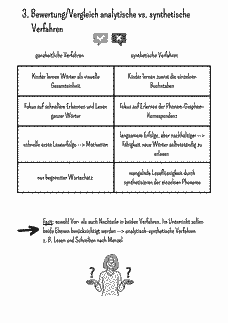 3. Bewertung/Vergleich analytische vs. synthetische
Verfahren
ganzheitliche Verfahren
synthetische Verfahren
Kinder lernen Wörter als visuelle
Gesamteinheit
Kinder lernen zuerst die einzelnen
Buchstaben
Fokus auf schnellem Erkennen und Lesen
ganzer Wörter
Fokus auf Erlernen der Phonem-Graphem-
Korrespondenz
schnelle erste Leseerfolge --> Motivation
langsamere Erfolge, aber nachhaltiger -->
Fähigkeit neue Wörter selbstständig zu
erlesen
nur begrenzter Wortschatz
mangelnde Leseflüssigkeit durch
synthetisieren der einzelnen Phoneme
Fazit: sowohl Vor- als auch Nachteile in beiden Verfahren. Im Unterricht sollen
beide Ebenen berücksichtigt werden --> analytisch-synthetische Verfahren
z. B. Lesen und Schreiben nach Menzel
? ?